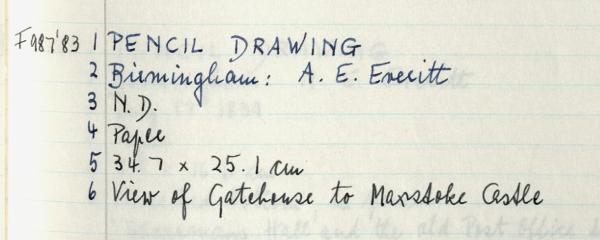 F987'83 1 PENCIL DRAWING
2 Birmingham: A. E. Everitt
3 N.D.
4 Paper
5 34.7 x 25.1 cm
6 View of Gatehouse to Maxstoke Castle